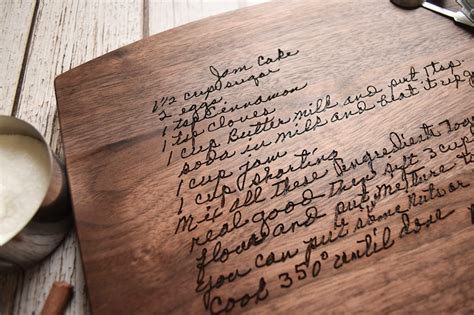 Jam Cake
1 1/2 cup sugar
2 eggs
1 tsp cinnamon
1 tsp cloves
1 cup butter milk and put 1 tsp.
soda in milk and beat it up good
1 cup jam
1 cup shorting
Mix all these ingredients tog
real good then sift 3 cup
flour and put mixture t
you can put some nuts or
Cook 350° until done